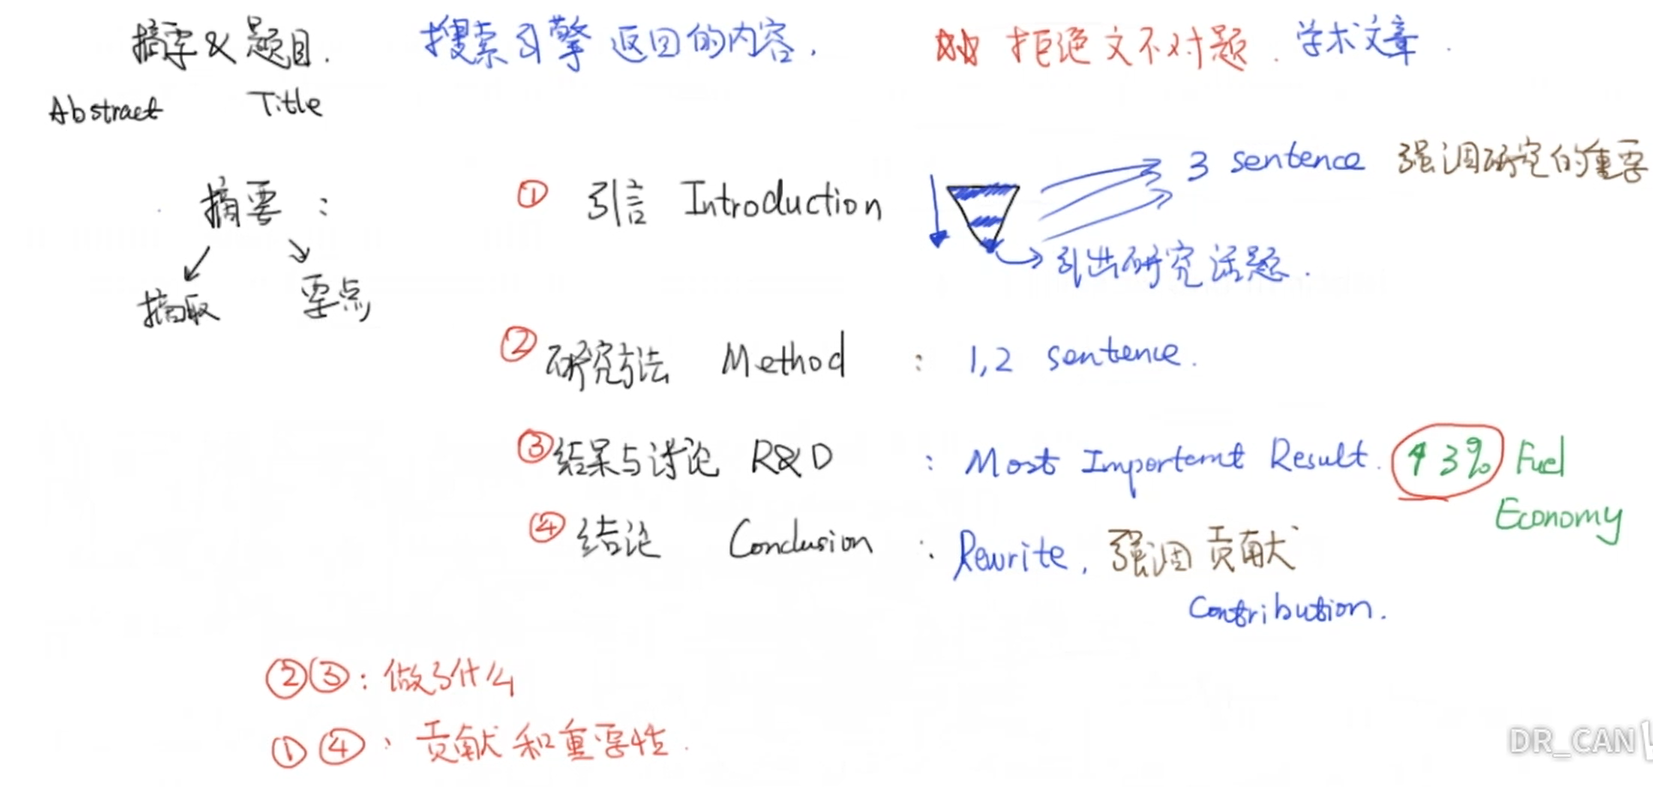 摘要 & 题目. 搜索引擎 返回的内容. 拒绝文不对题. 学术文章.
Abstract Title
① 引言 Introduction 3 sentence 强调研究的重要
摘要：
引出研究话题.
摘取 要点
② 研究方法 Method : 1,2 sentence.
③ 结果与讨论 R&D : Most Importemt Result. ↑3% Fuel
Economy
④ 结论 Conclusion : Rewrite, 强调贡献
Contribution.
②③: 做了什么
①④: 贡献和重要性.
DR_CAN